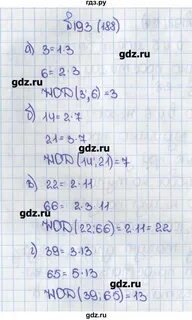 gdz.ru
№193 (188)
а) 3 = 1·3
gdz.ru
6 = 2·3
НОД(3;6) = 3
gdz.ru
б) 14 = 2·7
21 = 3·7
НОД(14;21) = 7
gdz.ru
в) 22 = 2·11
66 = 2·3·11
gdz.ru
НОД(22;66) = 2·11 = 22
г) 39 = 3·13
gdz.ru
65 = 5·13
НОД(39;65) = 13